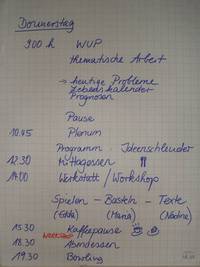 Donnerstag
900 h WUP
thematische Arbeit
→ heutige Probleme
Lebenskalender
Prognosen
Pause
10.45 Plenum
Programm: Ideenschleuder
12.30 Mittagessen
14.00 Werkstatt / Workshop
Spielen – Basteln – Texte
(Edda) (Maria) (Nadine)
15.30 Kaffeepause
18.30 Abendessen
19.30 Bowling